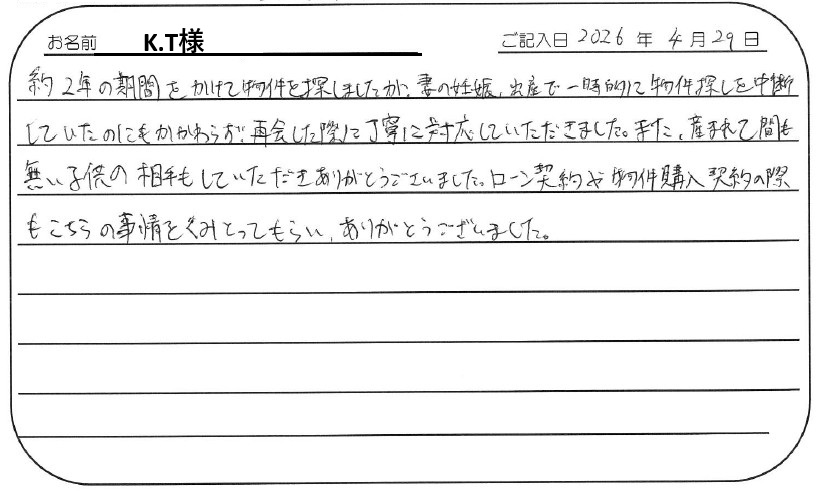 お名前 K.T様 ご記入日 2026 年 4 月 29 日
約2年の期間をかけて物件を探しましたが、妻の妊娠、出産で一時的に物件探しを中断
していたのにもかかわらず、再会した際に丁寧に対応していただきました。また、産まれて間も
無い子供の相手もしていただきありがとうございました。ローン契約や物件購入契約の際
もこちらの事情をくみとってもらい、ありがとうございました。